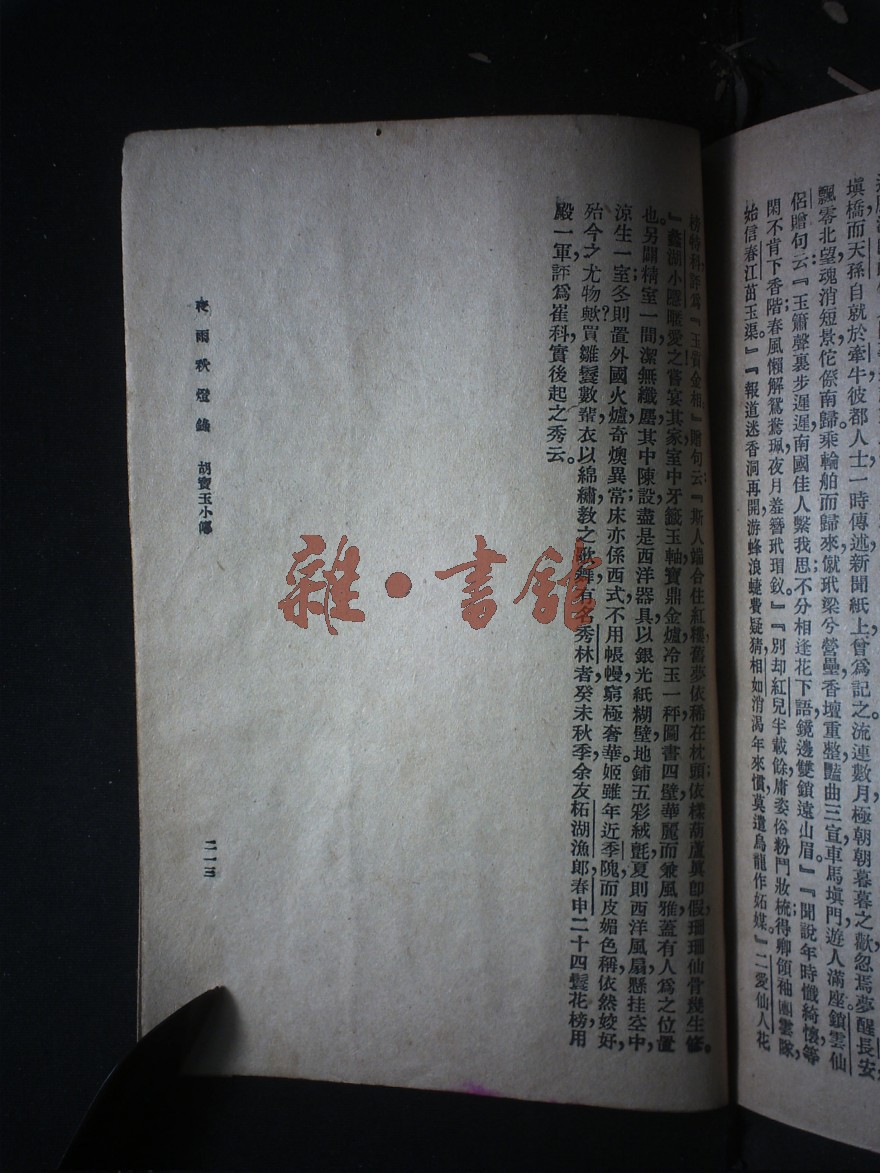 塡橋而天孫自就於牽牛彼都人士一時傳述新聞紙上曾爲記之。流連數月極朝朝暮暮之歡忽焉夢醒長安，
飄零北望魂消短景侘傺南歸乘輪舶而歸來僦玳梁兮營壘香壇重整豔曲三宣車馬塡門遊人滿座鎖雲仙
侶贈句云『玉簫聲裏步遲遲南國佳人繫我思不分相逢花下語鏡邊雙鎖遠山眉』『聞說年時懺綺懷等
閑不肯下香階春風懶解鴛鴦珮夜月羞簪玳瑁釵』『別却紅兒半載餘庸姿俗粉鬥妝梳得卿領袖團雲隊，
始信春江茁玉渠』『報道迷香洞再開游蜂浪蜨費疑猜相如消渴年來慣莫遣烏龍作妬媒』二愛仙人花
榜特科評爲『玉質金相』贈句云『斯人端合住紅樓舊夢依稀在枕頭依樣葫蘆眞卽假珊珊仙骨幾生修。
』蠡湖小隱暱愛之嘗宴其家室中牙籤玉軸寶鼎金爐冷玉一秤圖書四壁華麗而兼風雅蓋有人爲之位置
也。另闢精室一間潔無纖塵其中陳設盡是西洋器具以銀光紙糊壁地鋪五彩絨氈夏則西洋風扇懸挂空中，
涼生一室冬則置外國火爐奇燠異常床亦係西式不用帳幔窮極奢華。姬雖年近季隗而皮媚色稱依然姣好，
殆今之尤物歟？買雛鬟數輩衣以綿繡敎之歌舞有名秀林者癸未秋季余友柘湖漁郎春申二十四鬟花榜用
殿一軍評爲崔科實後起之秀云。
夜雨秋燈錄 胡寶玉小傳
二一三
雜·書館